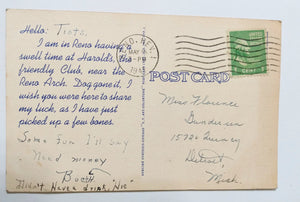 Hello: Toots,
I am in Reno having a
swell time at Harold's, the
friendly Club, near the
Reno Arch. Doggone it, I
wish you were here to share
my luck, as I have just
picked up a few bones.
Some fun I'll say
Need money
Booth
never drink, "Hic"
RENO, NEV.
MAY
PM
POST CARD
Miss Florence
Gunderson
Detroit,
Mich.